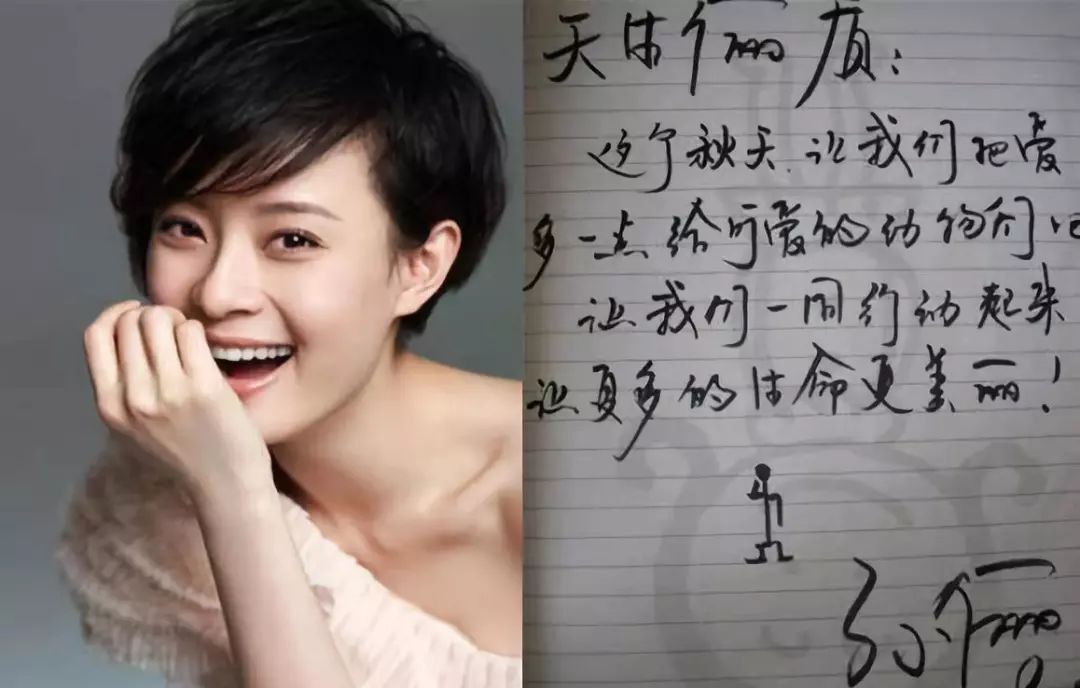 天生俪质：
这个秋天,让我们把爱
多一点给可爱的动物们吧
让我们一同行动起来
让更多的生命更美丽！
孙俪